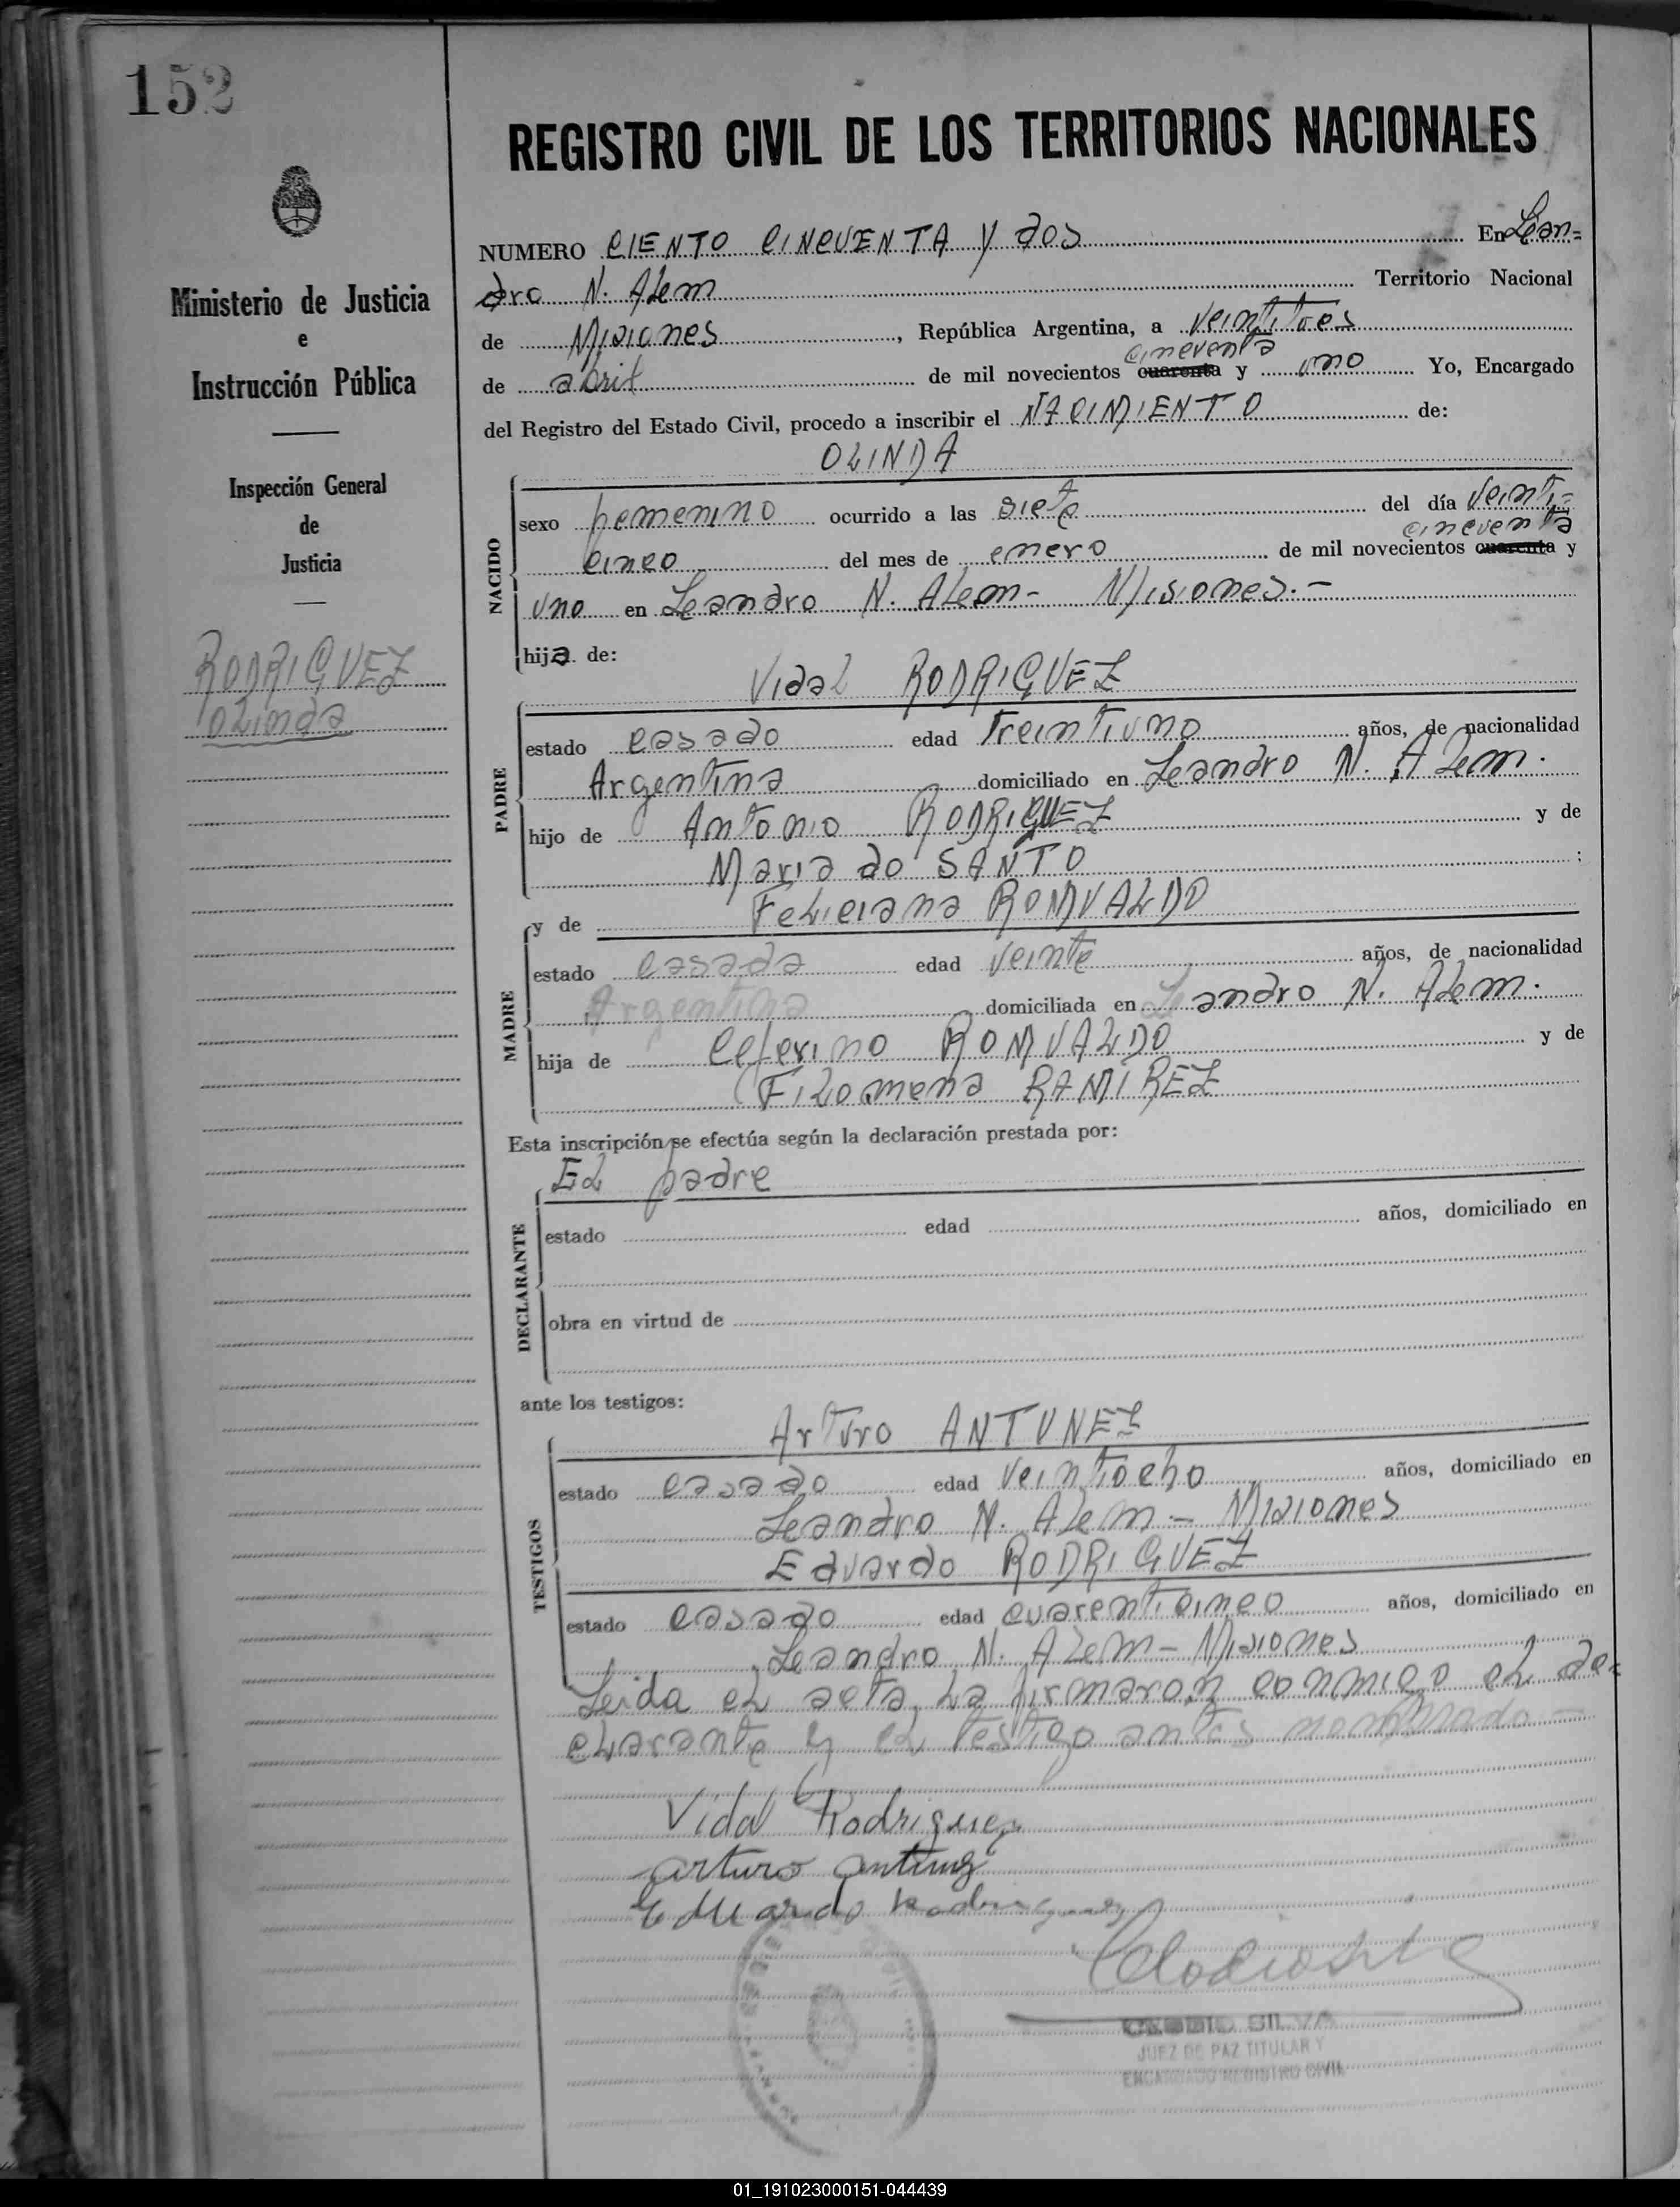 152
REGISTRO CIVIL DE LOS TERRITORIOS NACIONALES
Ministerio de Justicia
e
Instrucción Pública
Inspección General
de
Justicia
RODRIGUEZ
Olinda
NUMERO CIENTO CINCUENTA Y dos En Lean=
dro N. Alem Territorio Nacional
de Misiones, República Argentina, a veintitres
cincuenta
de abril de mil novecientos cuarenta y uno Yo, Encargado
del Registro del Estado Civil, procedo a inscribir el NACIMIENTO de:
OLINDA
NACIDO
sexo femenino ocurrido a las siete del día veinti=
cincuenta
cinco del mes de enero de mil novecientos cuarenta y
uno en Leandro N. Alem - Misiones.-
hija de:
Vidal RODRIGUEZ
PADRE
estado casado edad treintiuno años, de nacionalidad
Argentina domiciliado en Leandro N. Alem.
hijo de Antonio RODRIGUEZ y de
Maria do SANTO ;
y de Feliciana ROMUALDO
MADRE
estado casada edad veinte años, de nacionalidad
Argentina domiciliada en Leandro N. Alem.
hija de Ceferino ROMUALDO y de
Filomena RAMIREZ
Esta inscripción se efectúa según la declaración prestada por:
El padre
DECLARANTE
estado edad años, domiciliado en
obra en virtud de
ante los testigos:
Arturo ANTUNEZ
TESTIGOS
estado casado edad veintiocho años, domiciliado en
Leandro N. Alem - Misiones
Eduardo RODRIGUEZ
estado casado edad cuarenticinco años, domiciliado en
Leandro N. Alem - Misiones
Leida el acta la firmaron conmigo el de=
clarante y el testigo antes nombrado -
Vidal Rodriguez
arturo antunez
Eduardo Rodriguez
SILVA
JUEZ DE PAZ TITULAR Y
ENCARGADO REGISTRO CIVIL
01_191023000151-044439